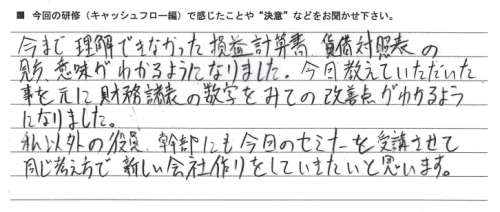 ■ 今回の研修（キャッシュフロー編）で感じたことや“決意”などをお聞かせ下さい。
今まで理解できなかった損益計算書、貸借対照表の
見方、意味がわかるようになりました。今回教えていただいた
事を元に財務諸表の数字をみての改善点がわかるよう
になりました。
私以外の役員、幹部にも今回のセミナーを受講させて
同じ考え方で新しい会社作りをしていきたいと思います。